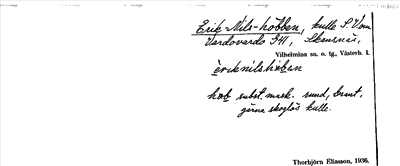 Erik-Nils-hobben, kulle S. Vom
Vardovardo I41,
Vilhelmina sn. o. tg., Västerb. l.
èriknilshåbən
håb subst. mask. rund, brant,
gärna skoglös kulle.
Thorbjörn Eliasson, 1936.